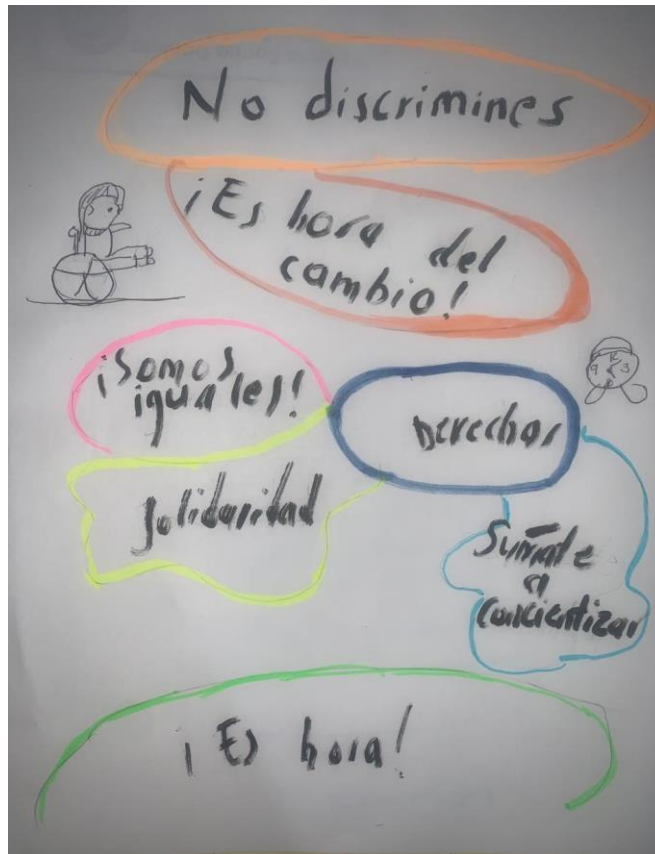 No discrimines
¡Es hora del
cambio!
¡Somos
iguales!
Derechos
Solidaridad
Súmate
a
concientizar
¡Es hora!